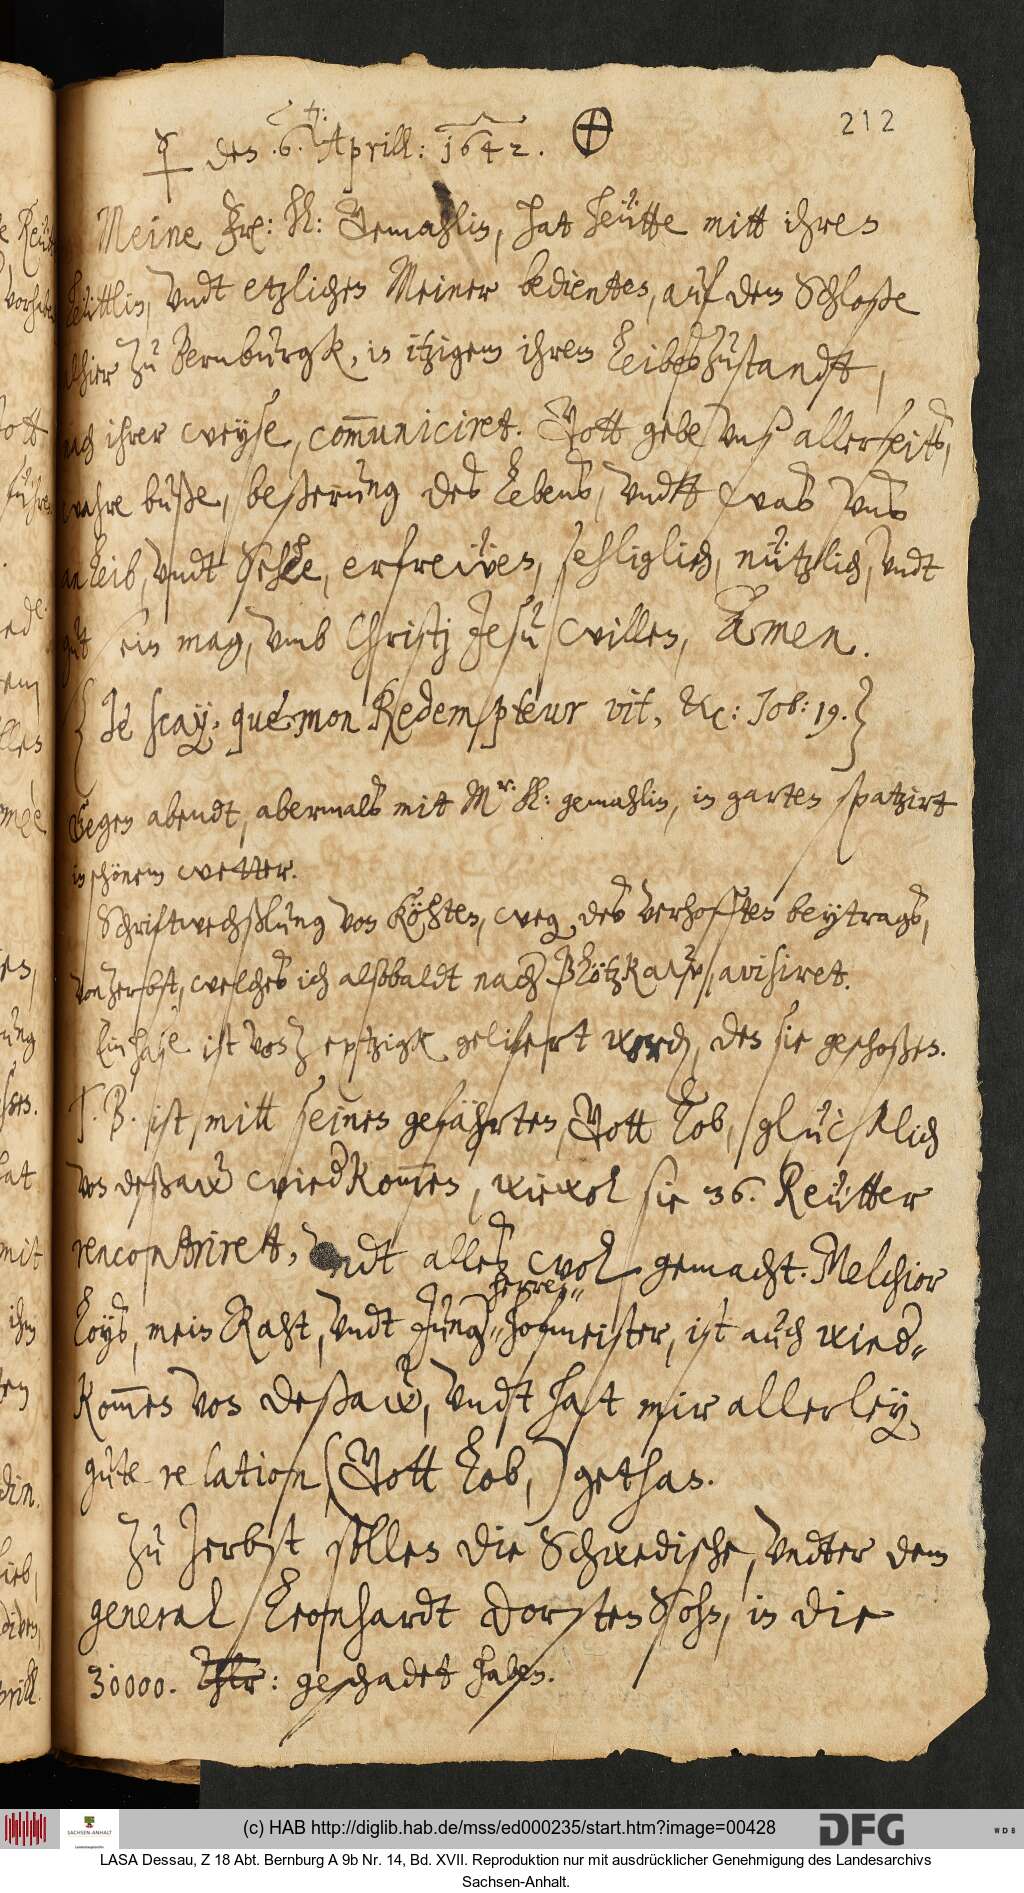 212
☿ den .6. Aprill: 1642. ⊕
Meine Frl: H: Gemahlin, hat heütte mitt ihren
leüttlin, vndt etzlichen Meiner bedienten, auf dem Schloße
alhier zu Bernburgk, in itzigem ihrem LeibesZustandt,
nach ihrer weyse, com̅uniciret. Gott gebe vnß allerseits,
wahre buße, beßerung des Lebens, vndt was vns
an Leib, vndt Sehle, erfreẅen, sehliglich, nützlich, vndt
gut sein mag, vmb Christj Jesu willen, Amen.
{Je sçay, que mon Redempteur vit, &c: Job: 19.}
Gegen abendt, abermals mitt Mr. H: gemahlin, in garten spatzirt
in schönem wetter.
Schriftwechßlung von Köhten, weg. des verhofften beytrags,
von Zerbst, welches ich alsobaldt nach Plötzkaw, avisiret.
Ein hase ist von Zeptzigk gelifert word, den sie geschoßen.
T. B. ist, mitt seinen gefährten Gott Lob, glücklich
von Deßaw wiedkom̅en, wiewol sie 36. Reütter
rencontrirett, vndt alles wol gemacht. Melchior
herren=
Loys, mein Raht, vndt Jung=hofmeister, ist auch wied=
kom̅en von Deßaw, vndt hat mir allerley
gute relation (Gott Lob,) gethan.
Zu Zerbst sollen die Schwedische, vndter dem
general Leonhardt DorstenSohn, in die
30000. Thlr: geschadet haben.
(c) HAB http://diglib.hab.de/mss/ed000235/start.htm?image=00428
SACHSEN-ANHALT
Landesarchiv
DFG
WDB
LASA Dessau, Z 18 Abt. Bernburg A 9b Nr. 14, Bd. XVII. Reproduktion nur mit ausdrücklicher Genehmigung des Landesarchivs
Sachsen-Anhalt.